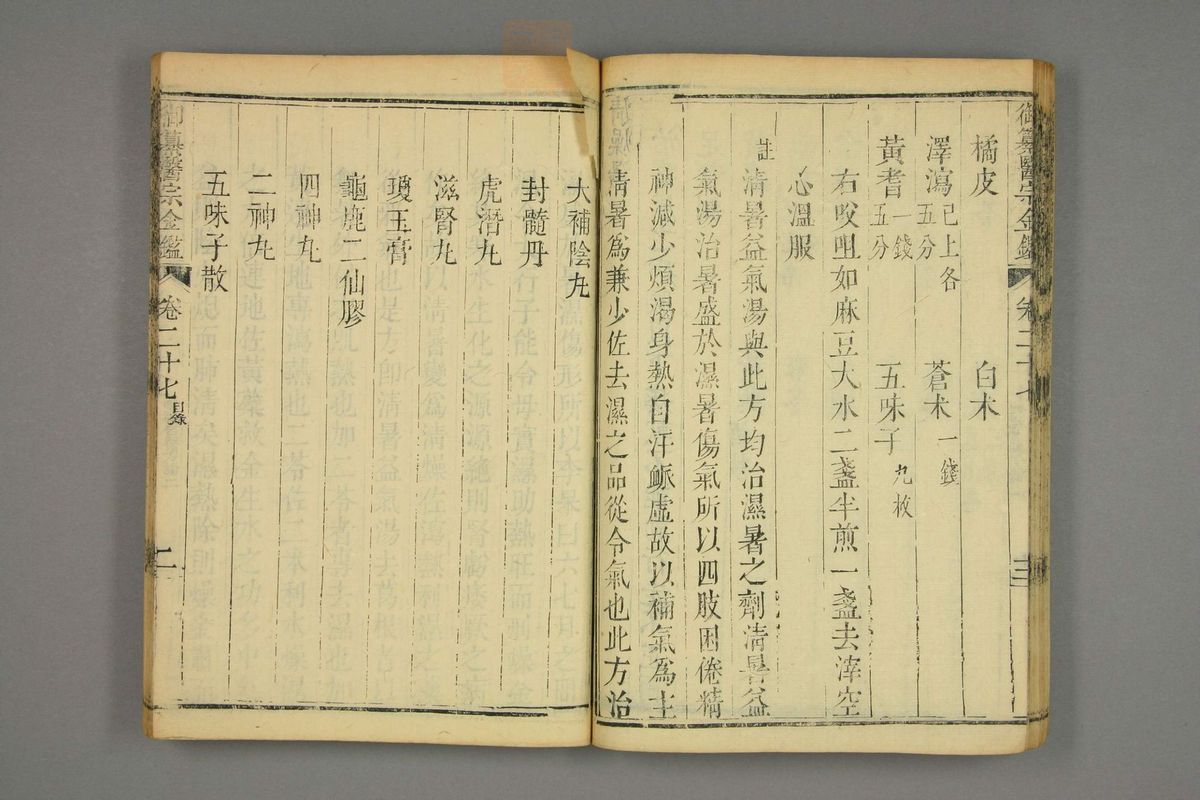 御纂醫宗金鑑 卷二十七 三
橘皮 白术
澤瀉 已上各五分 蒼术 一錢
黃耆 一錢五分 五味子 九枚
右㕮咀如麻豆大水二盞半煎一盞去滓空
心溫服
註 淸暑益氣湯與此方均治濕暑之劑淸暑益
氣湯治暑盛於濕暑傷氣所以四肢困倦精
神減少煩渴身熱自汗脈虛故以補氣爲主
淸暑爲兼少佐去濕之品從令氣也此方治
大補陰丸
封髓丹
虎潛丸
滋腎丸
瓊玉膏
龜鹿二仙膠
四神丸
二神丸
五味子散
御纂醫宗金鑑 卷二十七 目錄 二